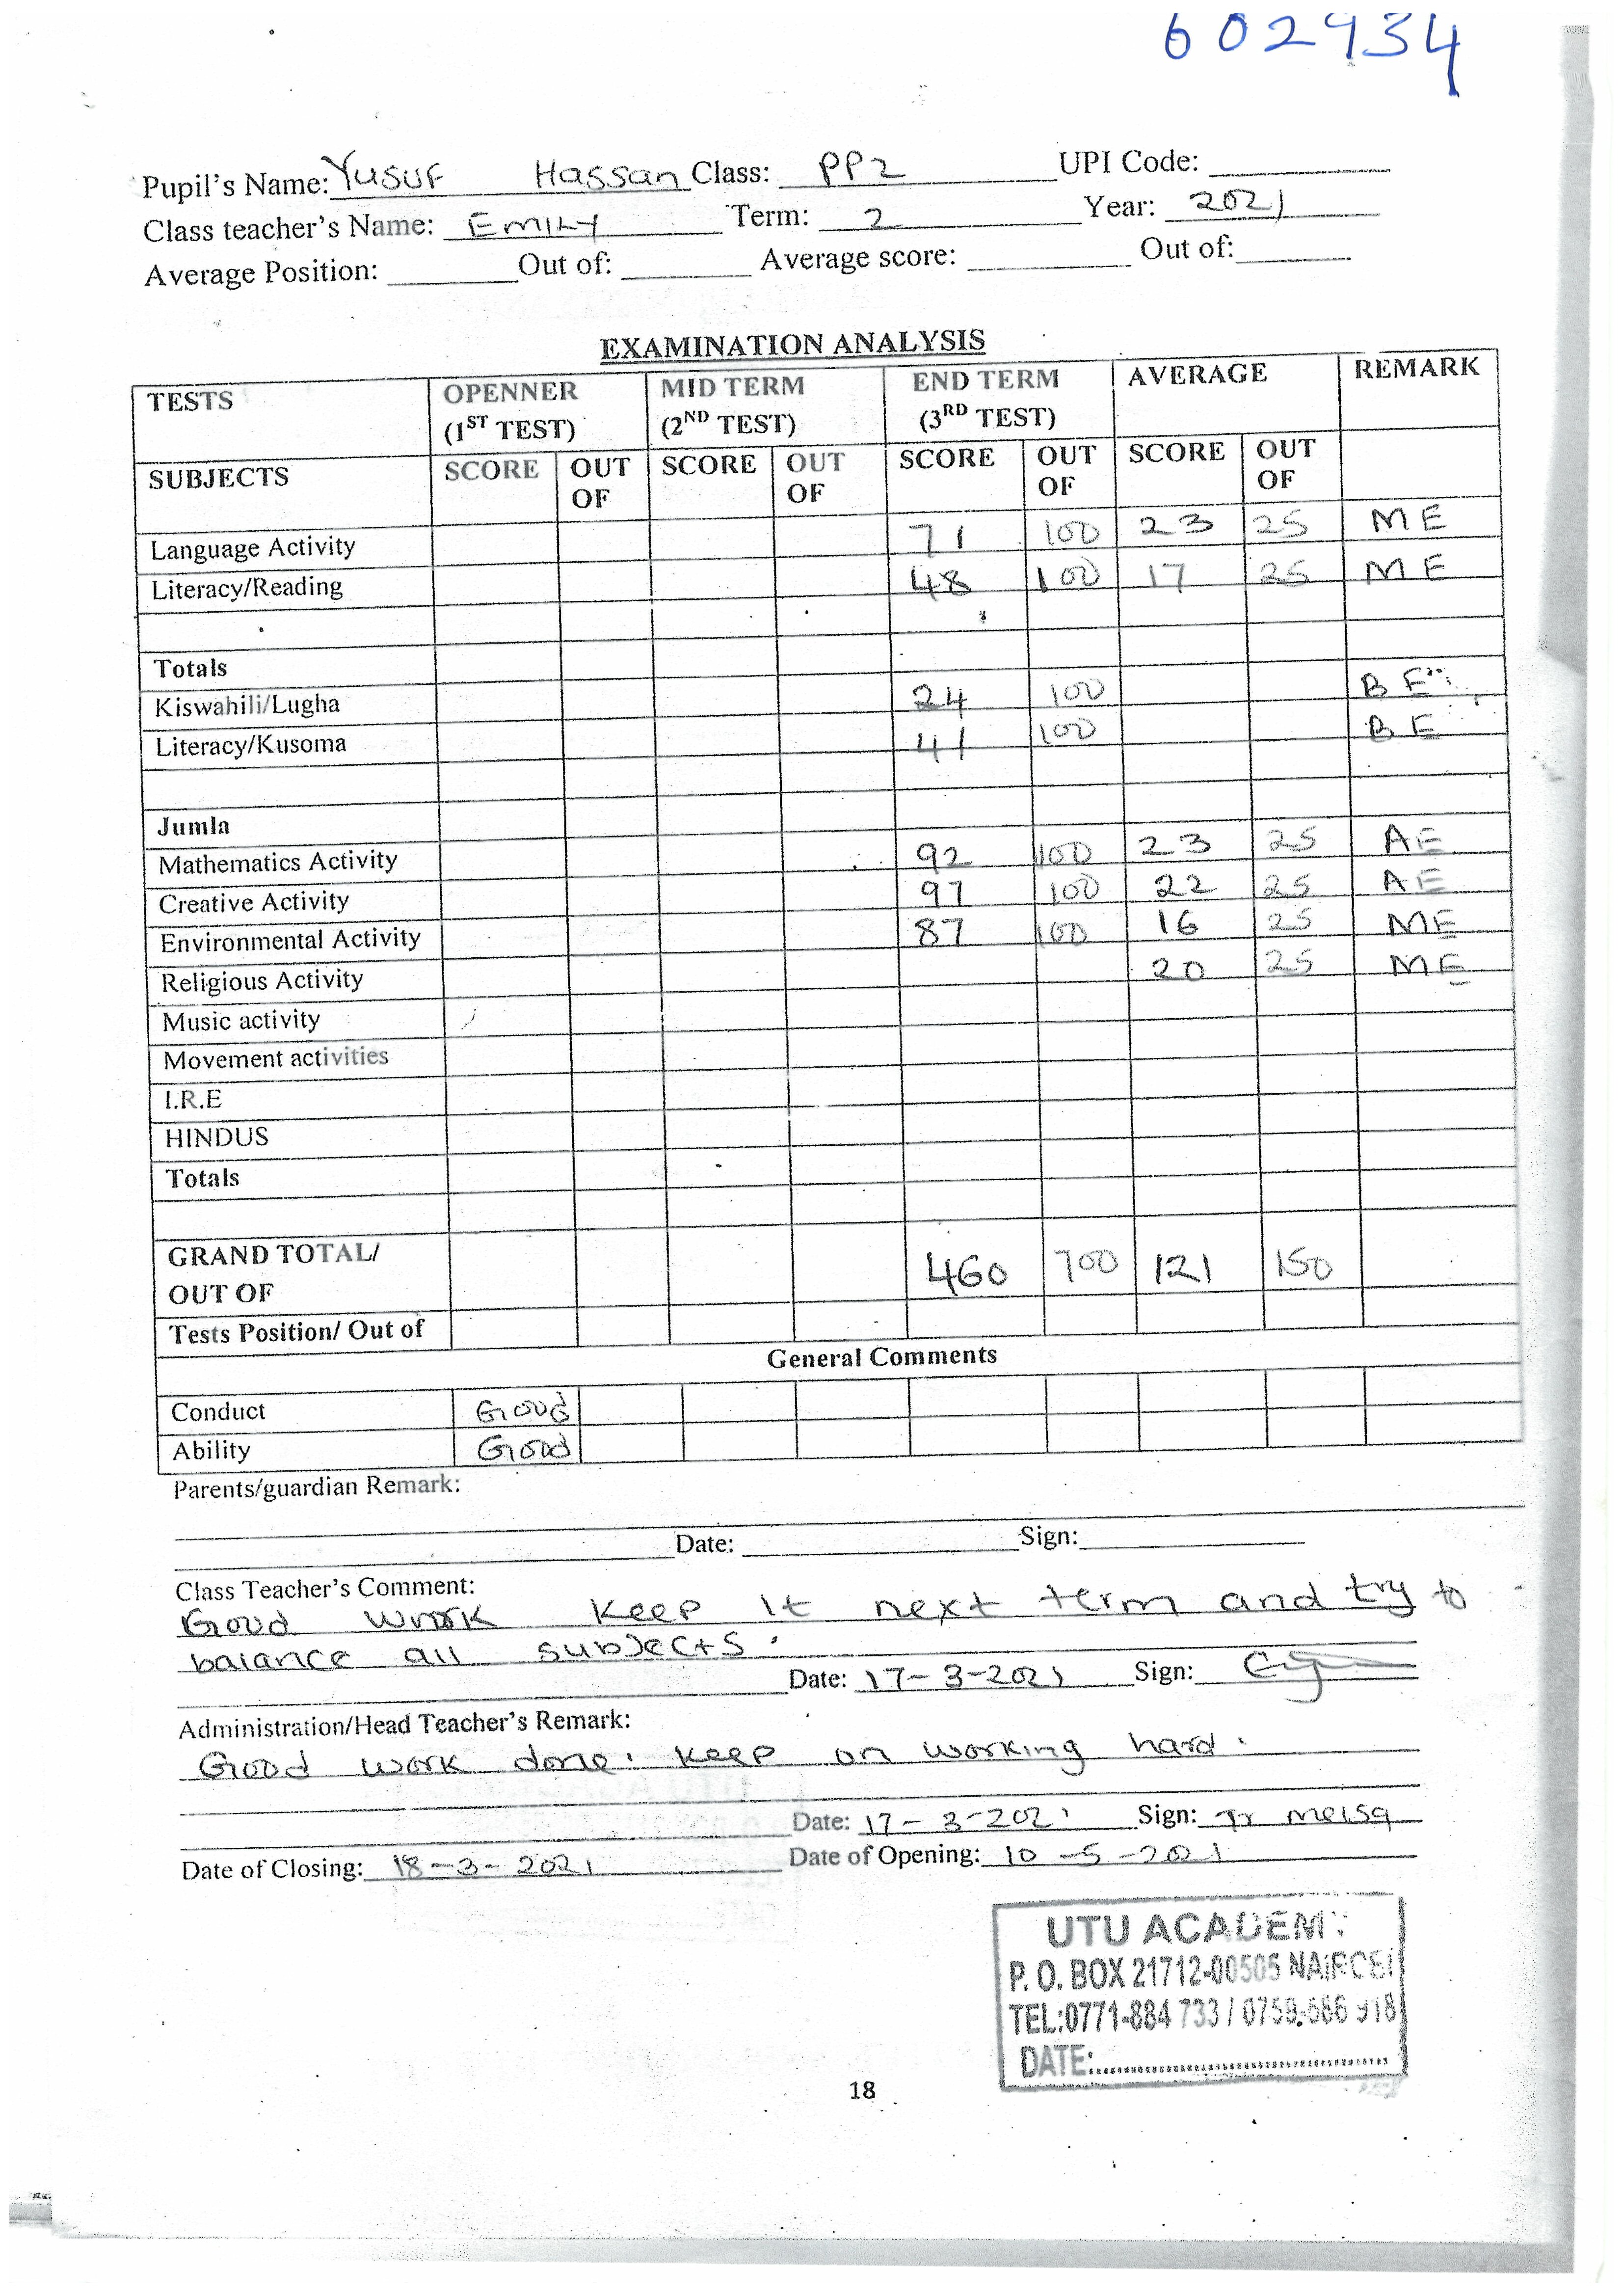 602934
Pupil's Name: Yusuf Hassan Class: PP2 UPI Code:
Class teacher's Name: EMILY Term: 2 Year: 2021
Average Position: Out of: Average score: Out of:
EXAMINATION ANALYSIS
TESTS OPENNER (1ST TEST) MID TERM (2ND TEST) END TERM (3RD TEST) AVERAGE REMARK
SUBJECTS SCORE OUT OF SCORE OUT OF SCORE OUT OF SCORE OUT OF
Language Activity 71 100 23 25 ME
Literacy/Reading 48 100 17 25 ME
Totals
Kiswahili/Lugha 24 100 BE
Literacy/Kusoma 41 100 BE
Jumla
Mathematics Activity 92 100 23 25 AE
Creative Activity 97 100 22 25 AE
Environmental Activity 87 100 16 25 ME
Religious Activity 20 25 ME
Music activity
Movement activities
I.R.E
HINDUS
Totals
GRAND TOTAL/ OUT OF 460 700 121 150
Tests Position/ Out of
General Comments
Conduct Good
Ability Good
Parents/guardian Remark:
Date: Sign:
Class Teacher's Comment:
Good work keep it next term and try to
balance all subjects.
Date: 17-3-2021 Sign:
Administration/Head Teacher's Remark:
Good work done. keep on working hard.
Date: 17-3-2021 Sign: Tr
Date of Closing: 18-3-2021 Date of Opening: 10-5-2021
UTU ACADEMY
P. O. BOX 21712-00505 NAIROBI
TEL:0771-884 733 / 0758-686 918
DATE:
18